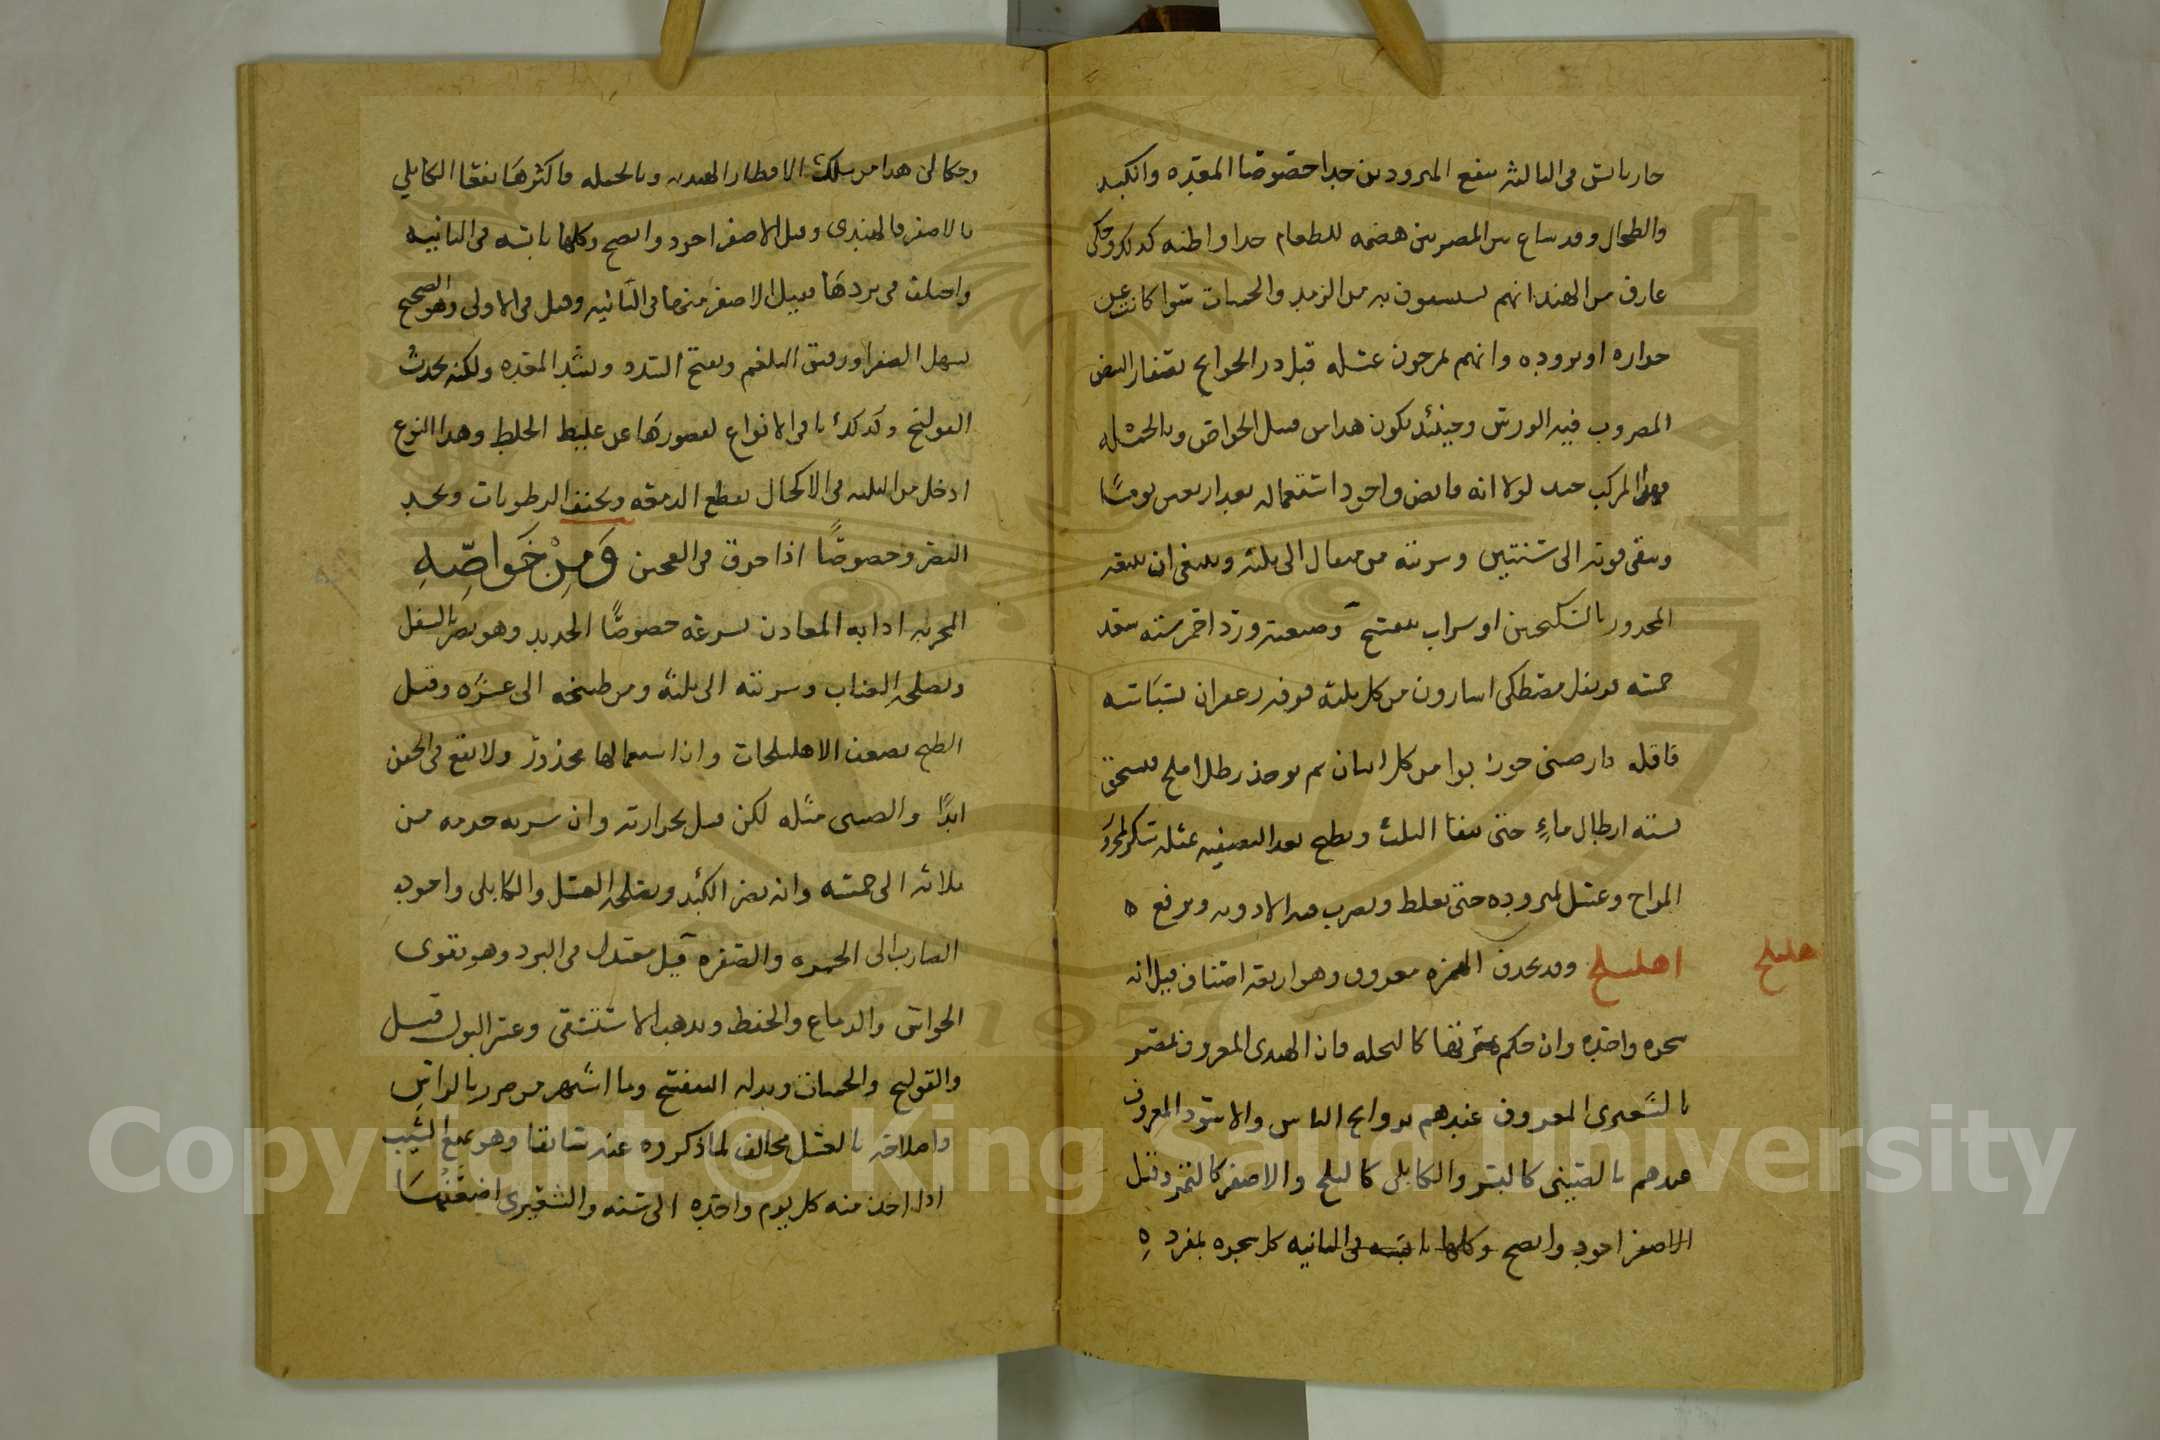 حار يابس فى الثالثه ينفع المبرودين جدا خصوصا المعده والكبد
والطحال وقد شاع بين المصريين هضمه للطعام جدا واظنه كذلك وحكى
عارف من الهند انهم يستعملون به من الزمد والحميات سوا كانت عن
حراره او بروده وانهم يمزجون عسله قبل در الحوايج بصفار البيض
المضروب فيه الورس وحينئذ يكون هذا من قبيل الخواص وبالجمله
فهذا المركب جيد لولا انه قابض واجود استعماله بعد اربعين يوما
وتبقى قوته الى سنتين وشربته من مثقال الى ثلثه وينبغى ان يتبعه
المحرور بالسكنجبين او شراب البنفسج وصنعته ورد احمر سته سعد
خمسه قرنفل مصطكى اسارون من كل ثلثه قرفه زعفران بسباسه
قاقله دارصينى جوز بوا من كل اثنان ثم يوخذ رطل املج فيسحق
بسته ارطال ماءٍ حتى يبقا الثلث ويطبخ بعد التصفيه عثله سكر لمحرور
المزاج وعسل لمبروده حتى يغلظ ويضرب فيه الادويه ويرفع ه
هليلج
اهليلج وقد تحذف الهمزه معروف وهو اربعه اصناف قيل انه
شجره واحده وان حكم ثمرتها كالنخله وان الهندى المعروف بمصر
بالشعيرى المعروف عندهم بروايح الناس والاسود المعروف
عندهم بالصينى كالبسر والكابلى كالبلح والاصفر كالتمر وقيل
الاصفر اجود وانضج وكلها يابسه فى الثانيه كل شجره بمفرده
وحكا لى هذا من سلك الاقطار الهنديه وبالجمله فاكثرها نفعا الكابلي
فالاصفر فالهندى وقيل الاصفر اجود وانضج وكلها يابسه فى الثانيه
واختلف فى بردها فقيل الاصفر منها فى الثانيه وقيل فى الاولى وهو الصحيح
يسهل الصفرا ورقيق البلغم ويفتح السدد ويشد المعده ولكنه يحدث
القولنج وكذلك باقى الانواع لقصورها عن غليظ الخلط وهذا النوع
ادخل من الثلثه فى الاكحال يقطع الدمعه ويجفف الرطوبات ويحد
البصر وخصوصًا اذا حرق فى العجين وَمِنْ خَوَاصِّهِ
المجربه اذابه المعادن بسرعه خصوصًا الحديد وهو يضر بالسفل
ويصلحه العناب وشربته الى ثلثه ومن طبيخه الى عشره وقيل
الطبخ يضعف الاهليلجات وان استعمالها محذور ولا يقع فى الحقن
ابدًا والصينى مثله لكن قيل بحرارته وان شربه جرمه من
ثلاثه الى خمسه وانه يضر الكبد ويصلحه العسل والكابلى واجود
الضارب الى الحمره والصفره قيل معتدل فى البرد وهو يقوى
الحواس والدماغ والحفظ ويذهب الاستسقى وعسر البول قيل
والقولنج والحميات وبدله البنفسج وما اشتهر من ضرره بالراس
واصلاحه بالعسل مخالف لما ذكروه عنه سابقا وهو يمنع الشيب
اذا اخذ منه كل يوم واحده الى سنه والشعيرى اضعفها